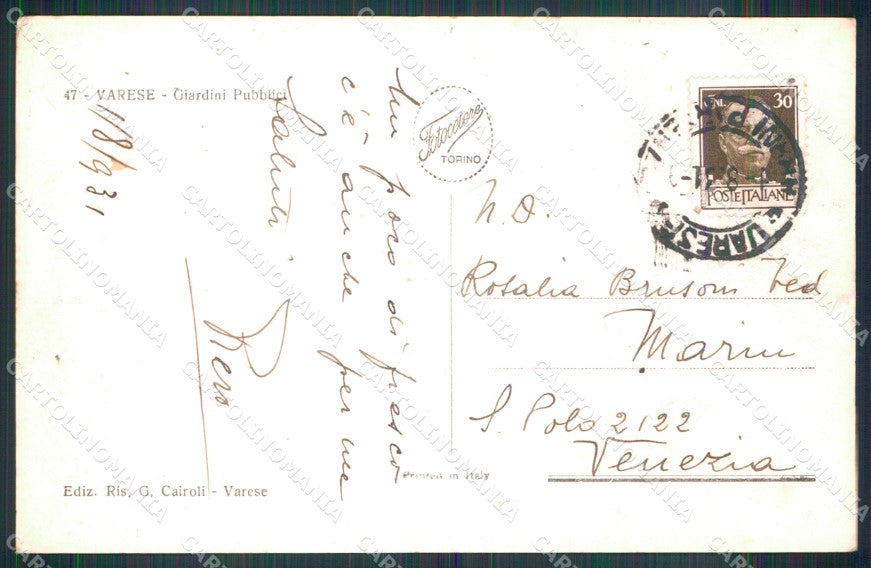 47 - VARESE - Giardini Pubblici
1/8/931
Un poco di fresco
c'è anche per me
Saluti
Piero
Fotocelere
TORINO
CENT. 30
POSTE ITALIANE
VARESE
N. D.
Rosalia Brusom Ved
Marin
S. Polo 2122
Venezia
Printed in Italy
Ediz. Ris. G. Cairoli - Varese
CARTOLINOMANIA